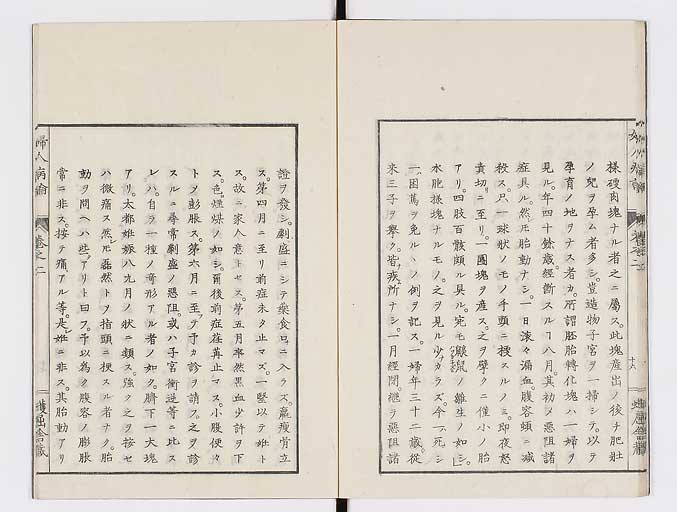 様硬肉塊ナル者之ニ屬ス。此塊産出ノ後チ肥壯
ノ兒ヲ孕ム者多シ。豈造物子宮ヲ一掃シテ。以テ
孕育ノ地ヲナス者カ。所謂胚胎轉化塊ハ一婦ヲ
見ル。年四十餘歳。經斷スルヿ八月。其初メ惡阻諸
症具ル。然𪜈胎動ナシ。一日滾々漏血。腹容頓ニ減
殺ス。只一球狀ノモノ手頭ニ捜スルノミ。即夜怒
責切ニ至リ。一團塊ヲ産ス。之ヲ擘クニ僅小ノ胎
アリ。四肢百骸頗ル具ル。宛モ鼴鼠ノ雛生ノ如シ。
水胞様塊ナルモノ。之ヲ見ル少カラズ。今一死シ
一困篤ヲ免ルヽノ例ヲ記ス。一婦年三十二歳。從
來三子ヲ擧ク。皆疾所ナシ。一月經閉。繼ラ惡阻諸
十八
證ヲ發シ。劇盛ニシテ藥食口ニ入ラズ。羸瘦骨立
ス。第四月ニ至リ前症未タ止マズ。一醫以テ姙ト
ス。故ニ家人意トセズ。第五月卒然黒血少許ヲ下
ス。色煙煤ノ如シ。爾後前症荏苒止マス。小腹便々
トメ膨脹ス。第六月ニ至テ予カ診ヲ請フ。之ヲ診
スルニ尋常劇盛ノ惡阻。或ハ子宮衝逆等ニ比ス
レハ。自ラ一種ノ奇形アル者ノ如ク。臍下一大塊
アリ。太都姙娠八九月ノ狀ニ類ス。強ク之ヲ按セ
ハ微痛ス。然𪜈磊然トメ指頭ニ捜スル者ナク。胎
動ヲ問ヘハ些アリト曰フ。予以為ク腹容ノ膨脹
常ニ非ス。按テ痛アル等。是レ姙ニ非ス。其胎動アリ
婦人病論
卷之二